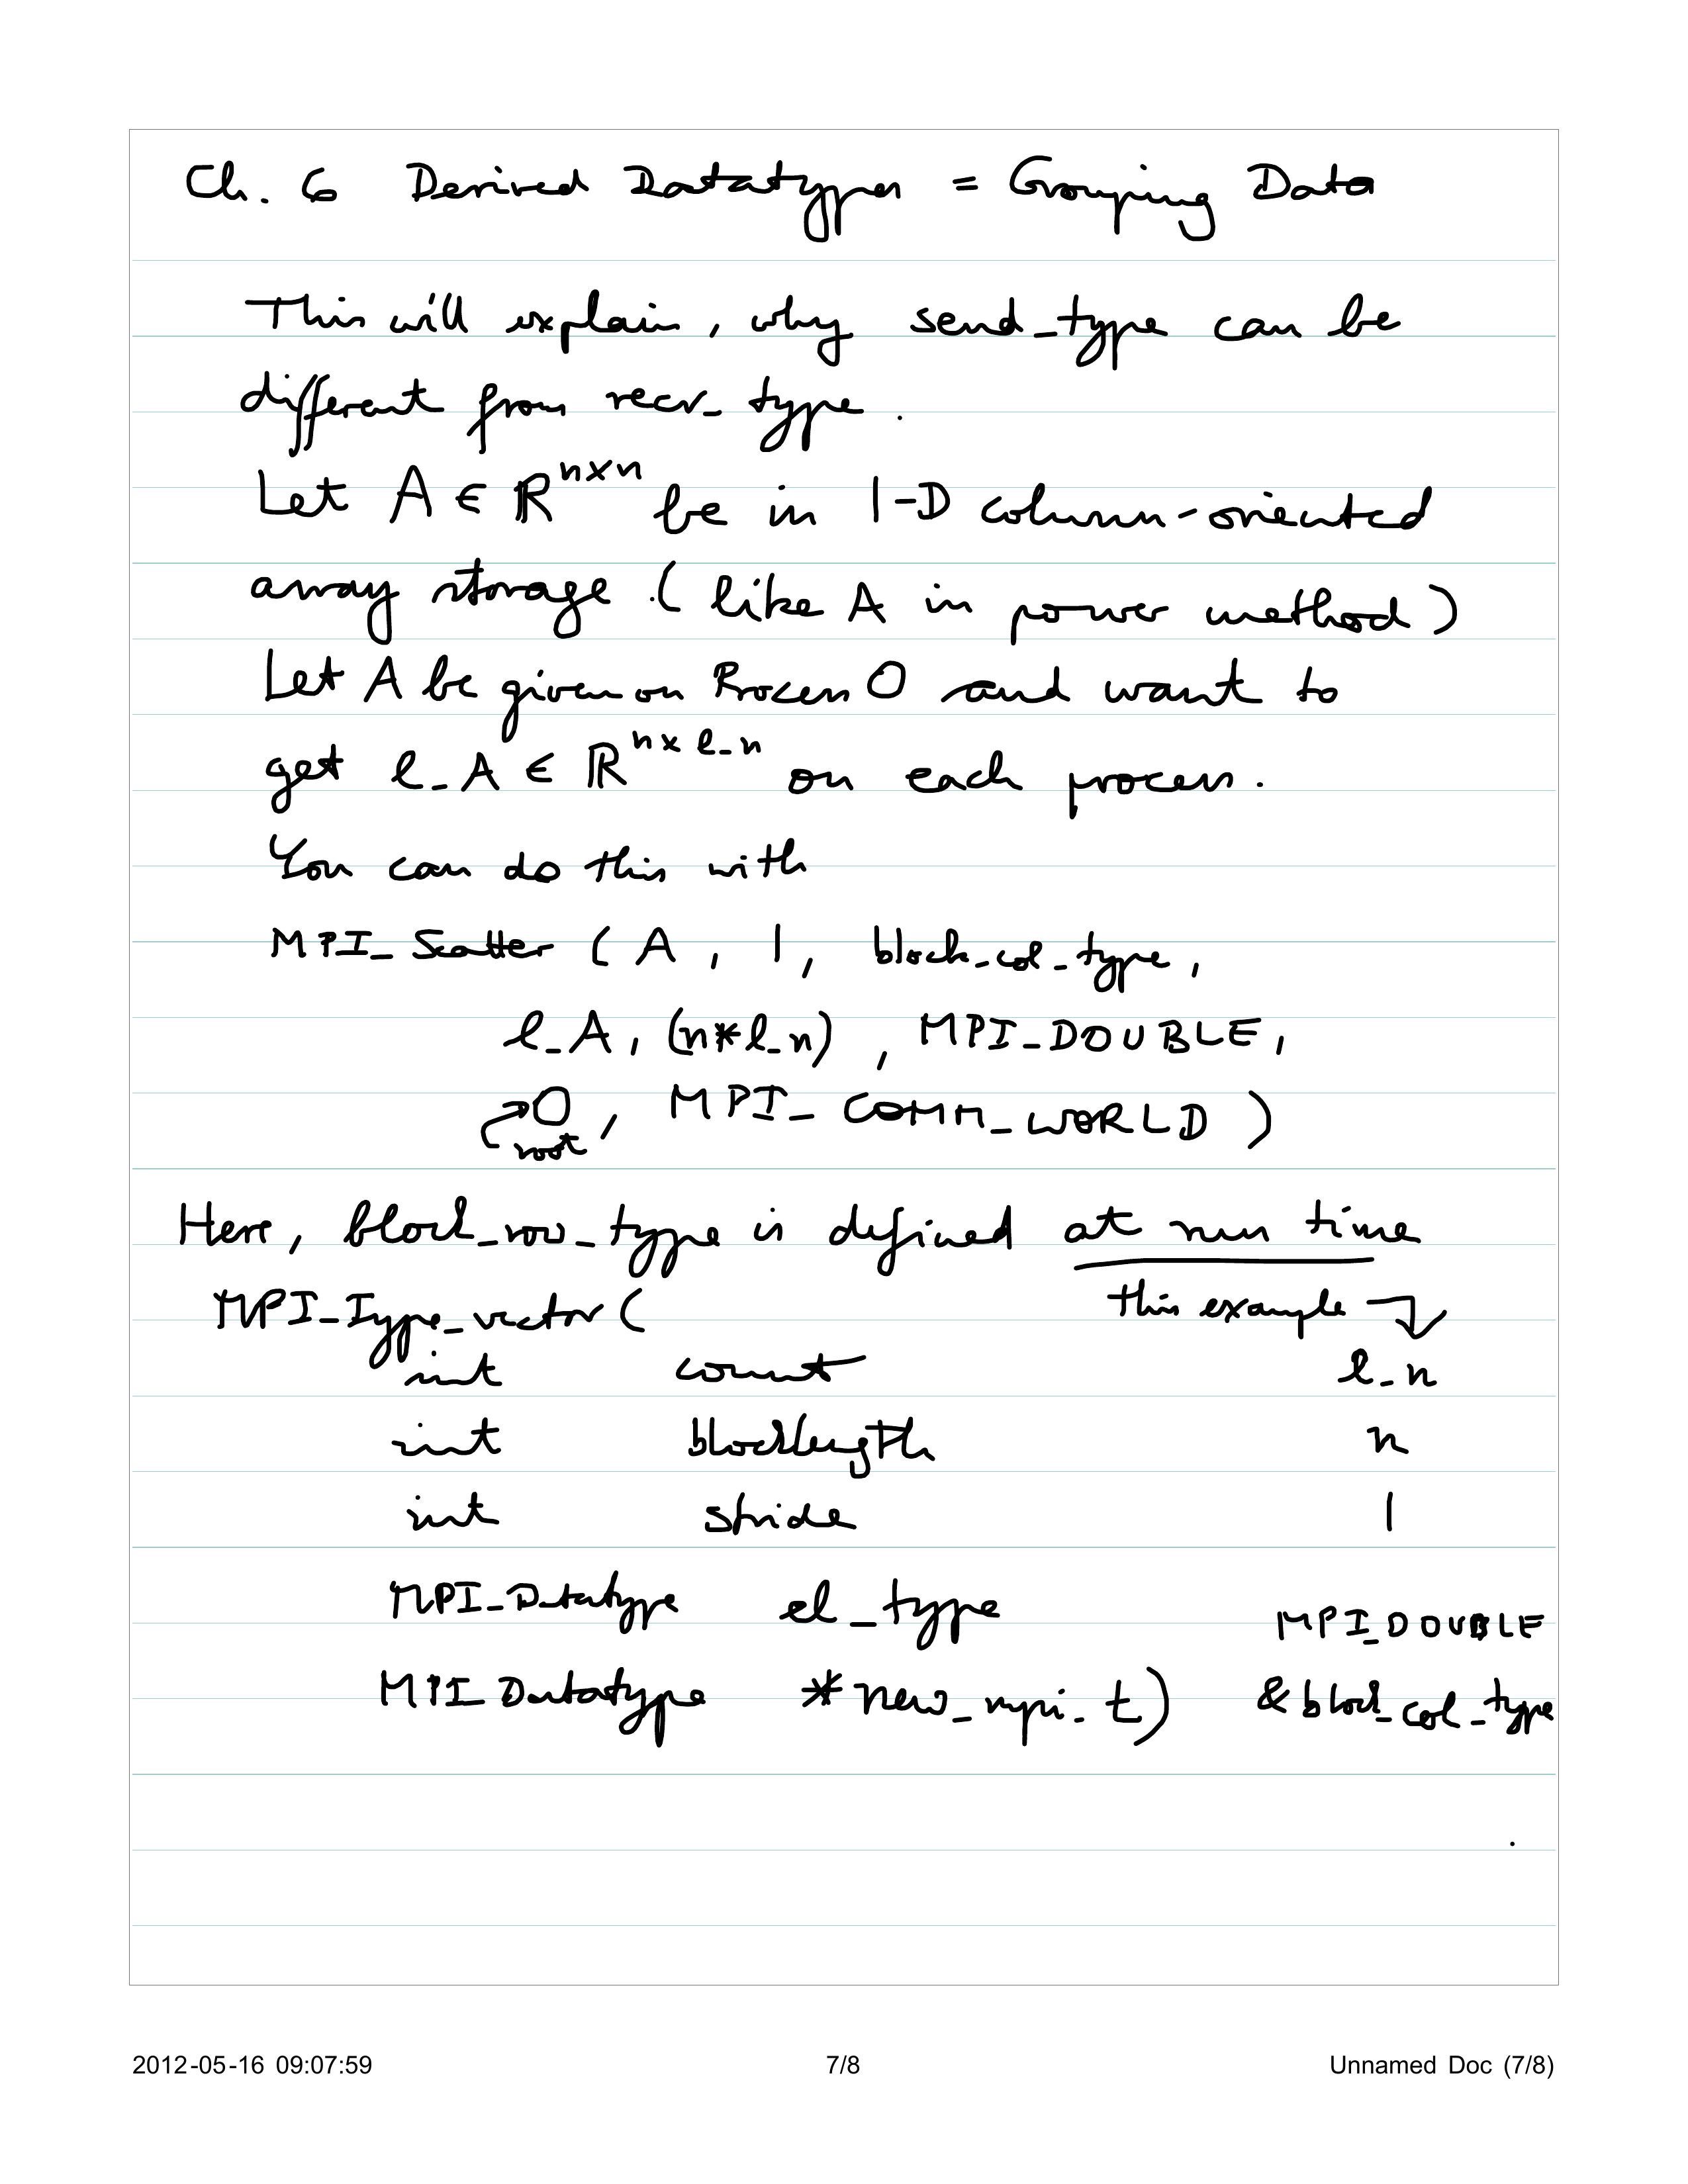 Ch. 6 Derived Datatypes = Grouping Data
This will explain, why send_type can be
different from recv_type.
Let A ∈ ℝ^{n×n} be in 1-D column-oriented
array storage. (like A in power method)
Let A be given on Process 0 and want to
get l_A ∈ ℝ^{n×l_n} on each process.
You can do this with
MPI_Scatter (A, 1, block_col_type,
l_A, (n*l_n), MPI_DOUBLE,
0, MPI_COMM_WORLD)
root
Here, block_row_type is defined at run time
MPI_Type_vector( this example
int count l_n
int blocklength n
int stride 1
MPI_Datatype el_type MPI_DOUBLE
MPI_Datatype *new_mpi_t) &block_col_type
2012-05-16 09:07:59 7/8 Unnamed Doc (7/8)